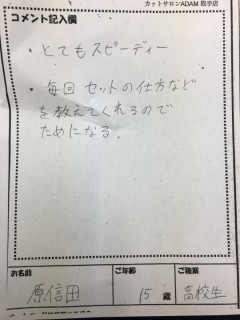 カットサロンADAM 取手店
コメント記入欄
・とてもスピーディー
・毎回 セットの仕方など
を教えてくれるので
ためになる。
お名前
ご年齢
ご職業
原信田
15 歳
高校生